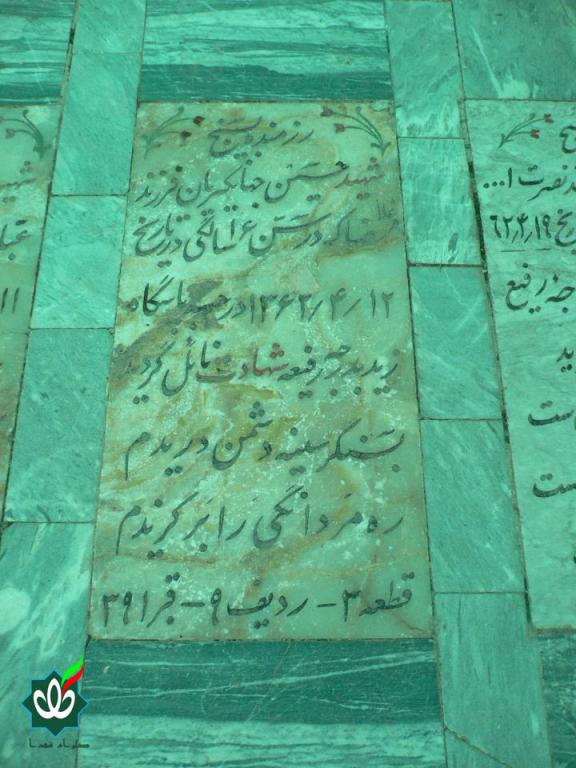 رزمنده بسیج
شهید حسین جهانگیریان فرزند
در سن ۱۶ سالگی در تاریخ
۱۳۶۲/۴/۱۲ در جبهه پاسگاه
زید بدرجه رفیعه شهادت نائل گردید
بسنگر سینه دشمن دریدم
ره مردانگی را برگزیدم
قطعه ۳ - ردیف ۹ - قبر ۳۹۱
نصرت ا...
۶۲٫۴٫۱۹
رفیع